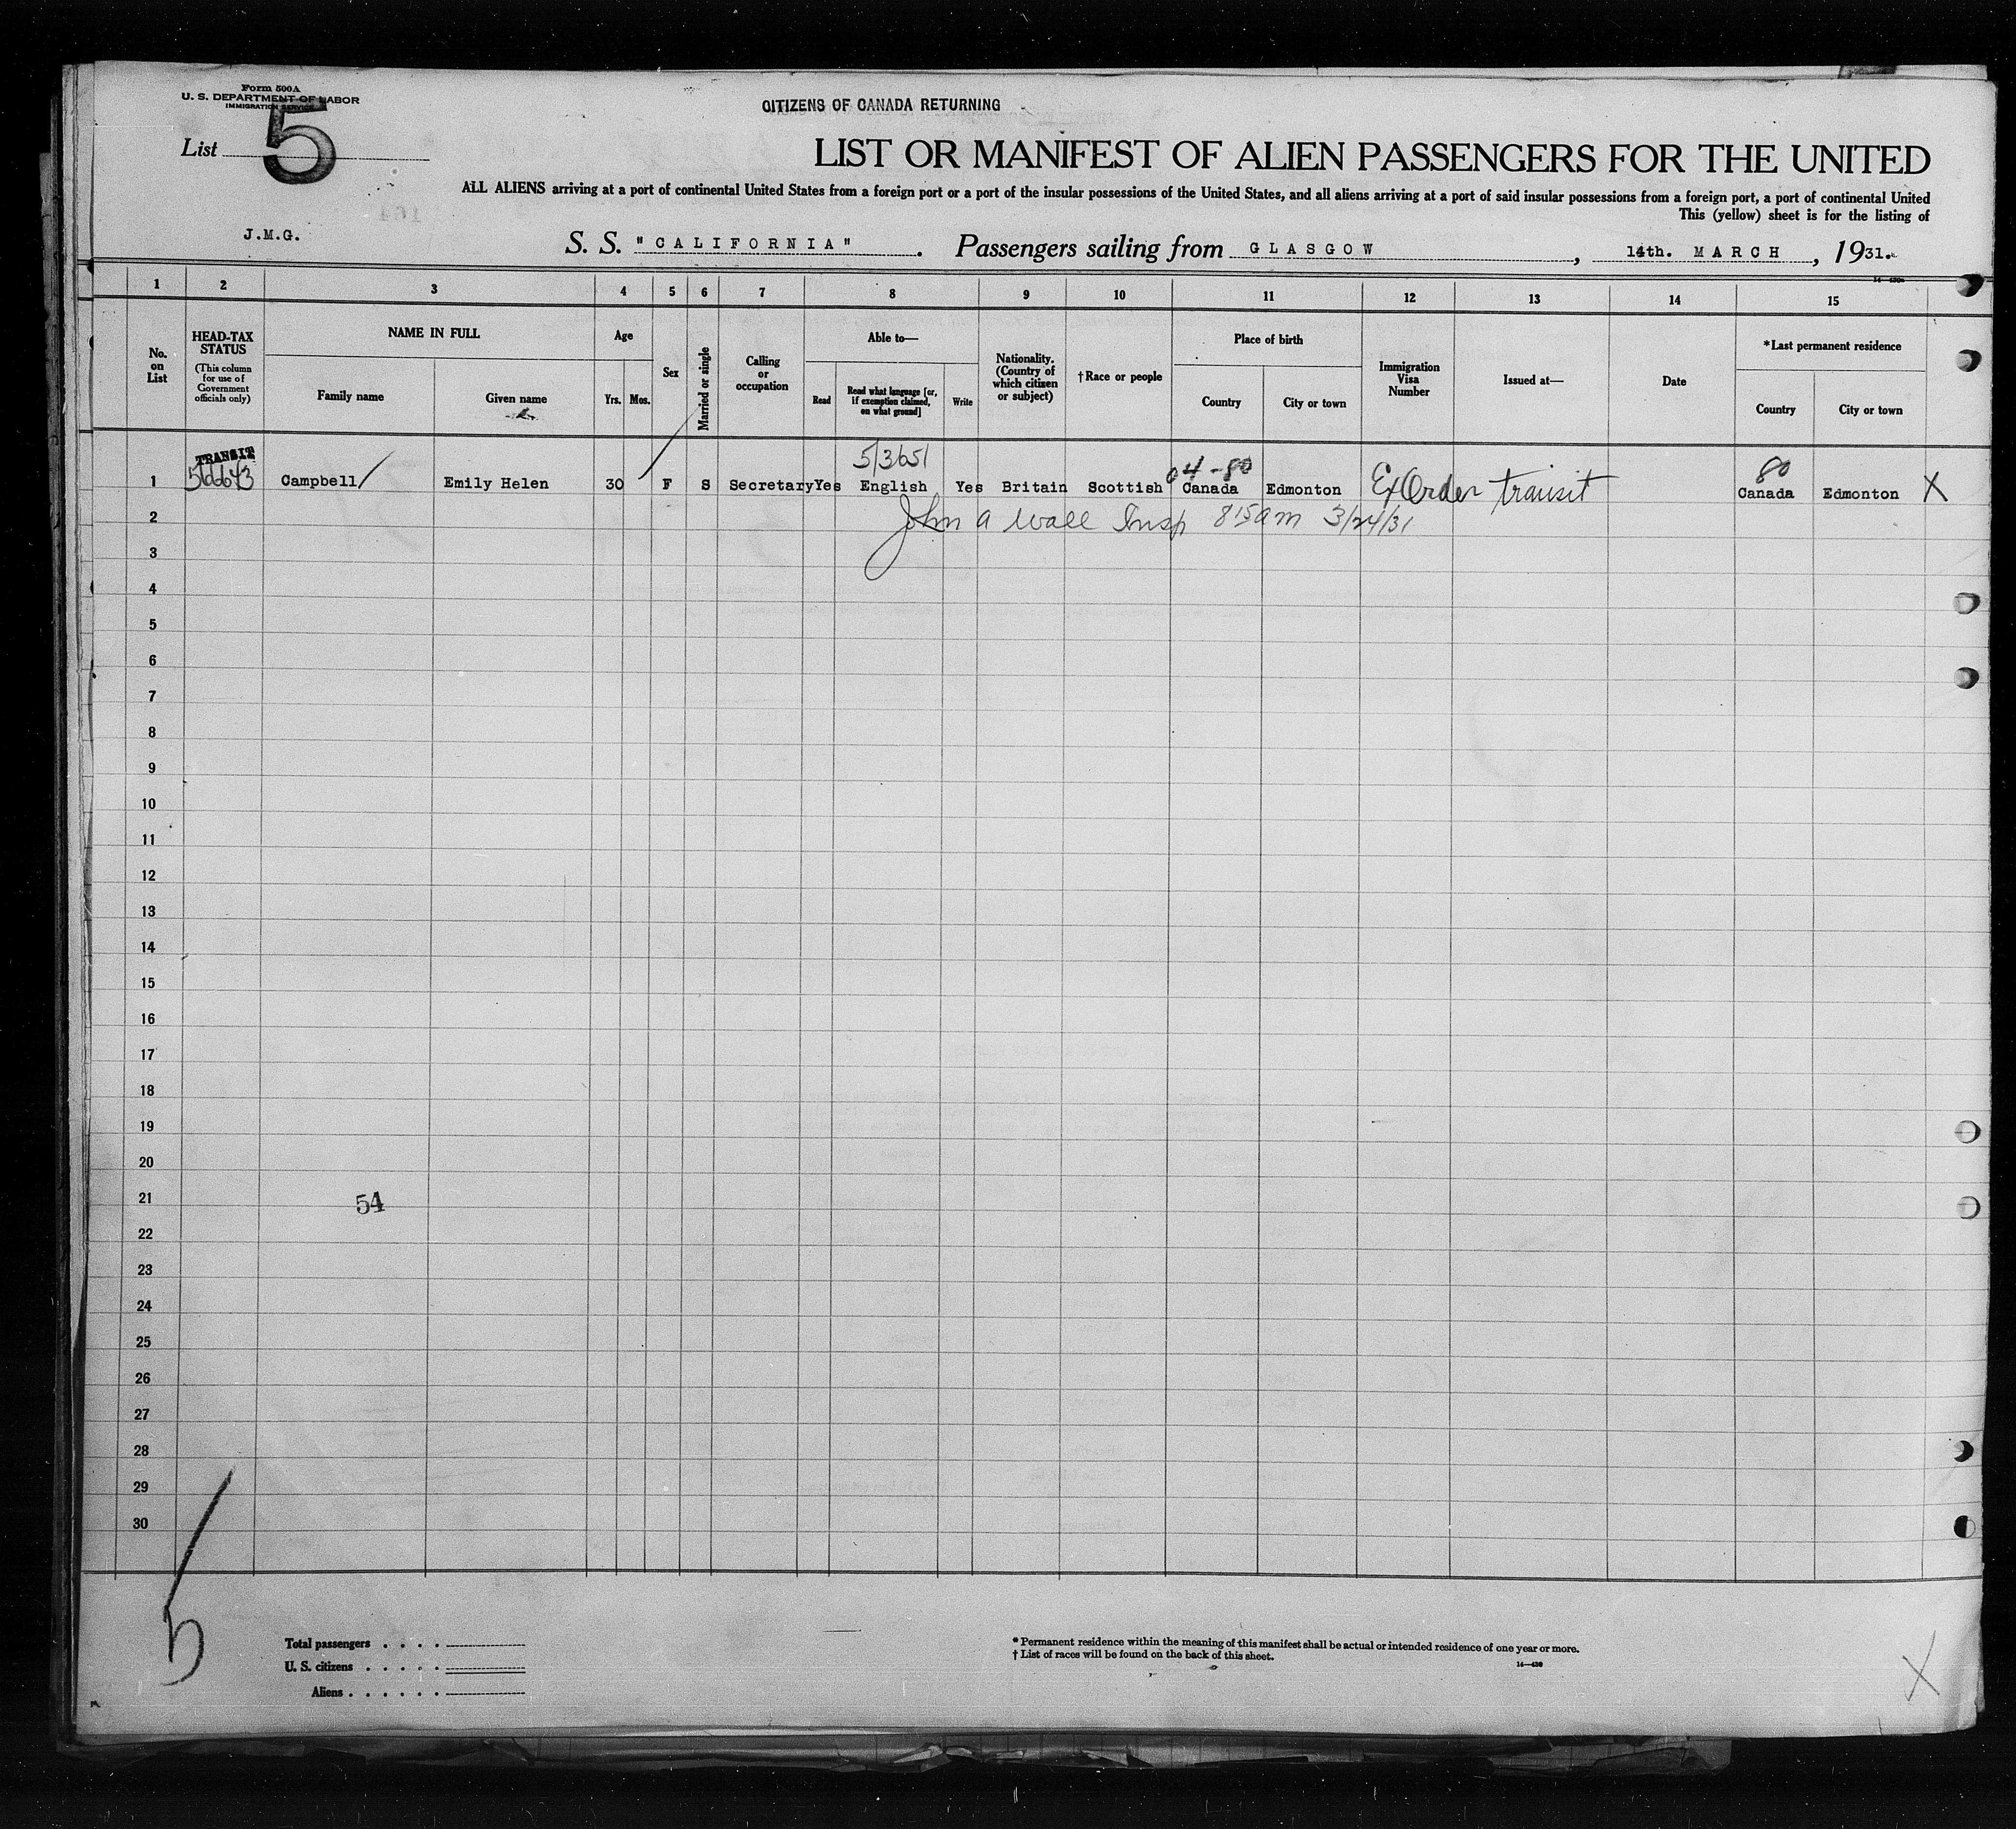 Form 500A
U. S. DEPARTMENT OF LABOR
IMMIGRATION SERVICE
CITIZENS OF CANADA RETURNING
List 5
LIST OR MANIFEST OF ALIEN PASSENGERS FOR THE UNITED
ALL ALIENS arriving at a port of continental United States from a foreign port or a port of the insular possessions of the United States, and all aliens arriving at a port of said insular possessions from a foreign port, a port of continental United
This (yellow) sheet is for the listing of
J.M.G.
S. S. "CALIFORNIA". Passengers sailing from GLASGOW, 14th. MARCH, 1931.
1 2 3 4 5 6 7 8 9 10 11 12 13 14 15
No. on List
HEAD-TAX STATUS
(This column for use of Government officials only)
NAME IN FULL
Family name
Given name
Age
Yrs. Mos.
Sex
Married or single
Calling or occupation
Able to—
Read
Read what language [or, if exemption claimed, on what ground]
Write
Nationality. (Country of which citizen or subject)
†Race or people
Place of birth
Country
City or town
Immigration Visa Number
Issued at—
Date
*Last permanent residence
Country
City or town
TRANSIT
5/3/651
04-80
80
1 Campbell Emily Helen 30 F S Secretary Yes English Yes Britain Scottish Canada Edmonton Ex Order transit Canada Edmonton X
2 John A Wall Insp 815am 3/24/31
3
4
5
6
7
8
9
10
11
12
13
14
15
16
17
18
19
20
21 54
22
23
24
25
26
27
28
29
30
5
Total passengers . . . .
U. S. citizens . . . . .
Aliens . . . . . .
* Permanent residence within the meaning of this manifest shall be actual or intended residence of one year or more.
† List of races will be found on the back of this sheet.
14—430
X